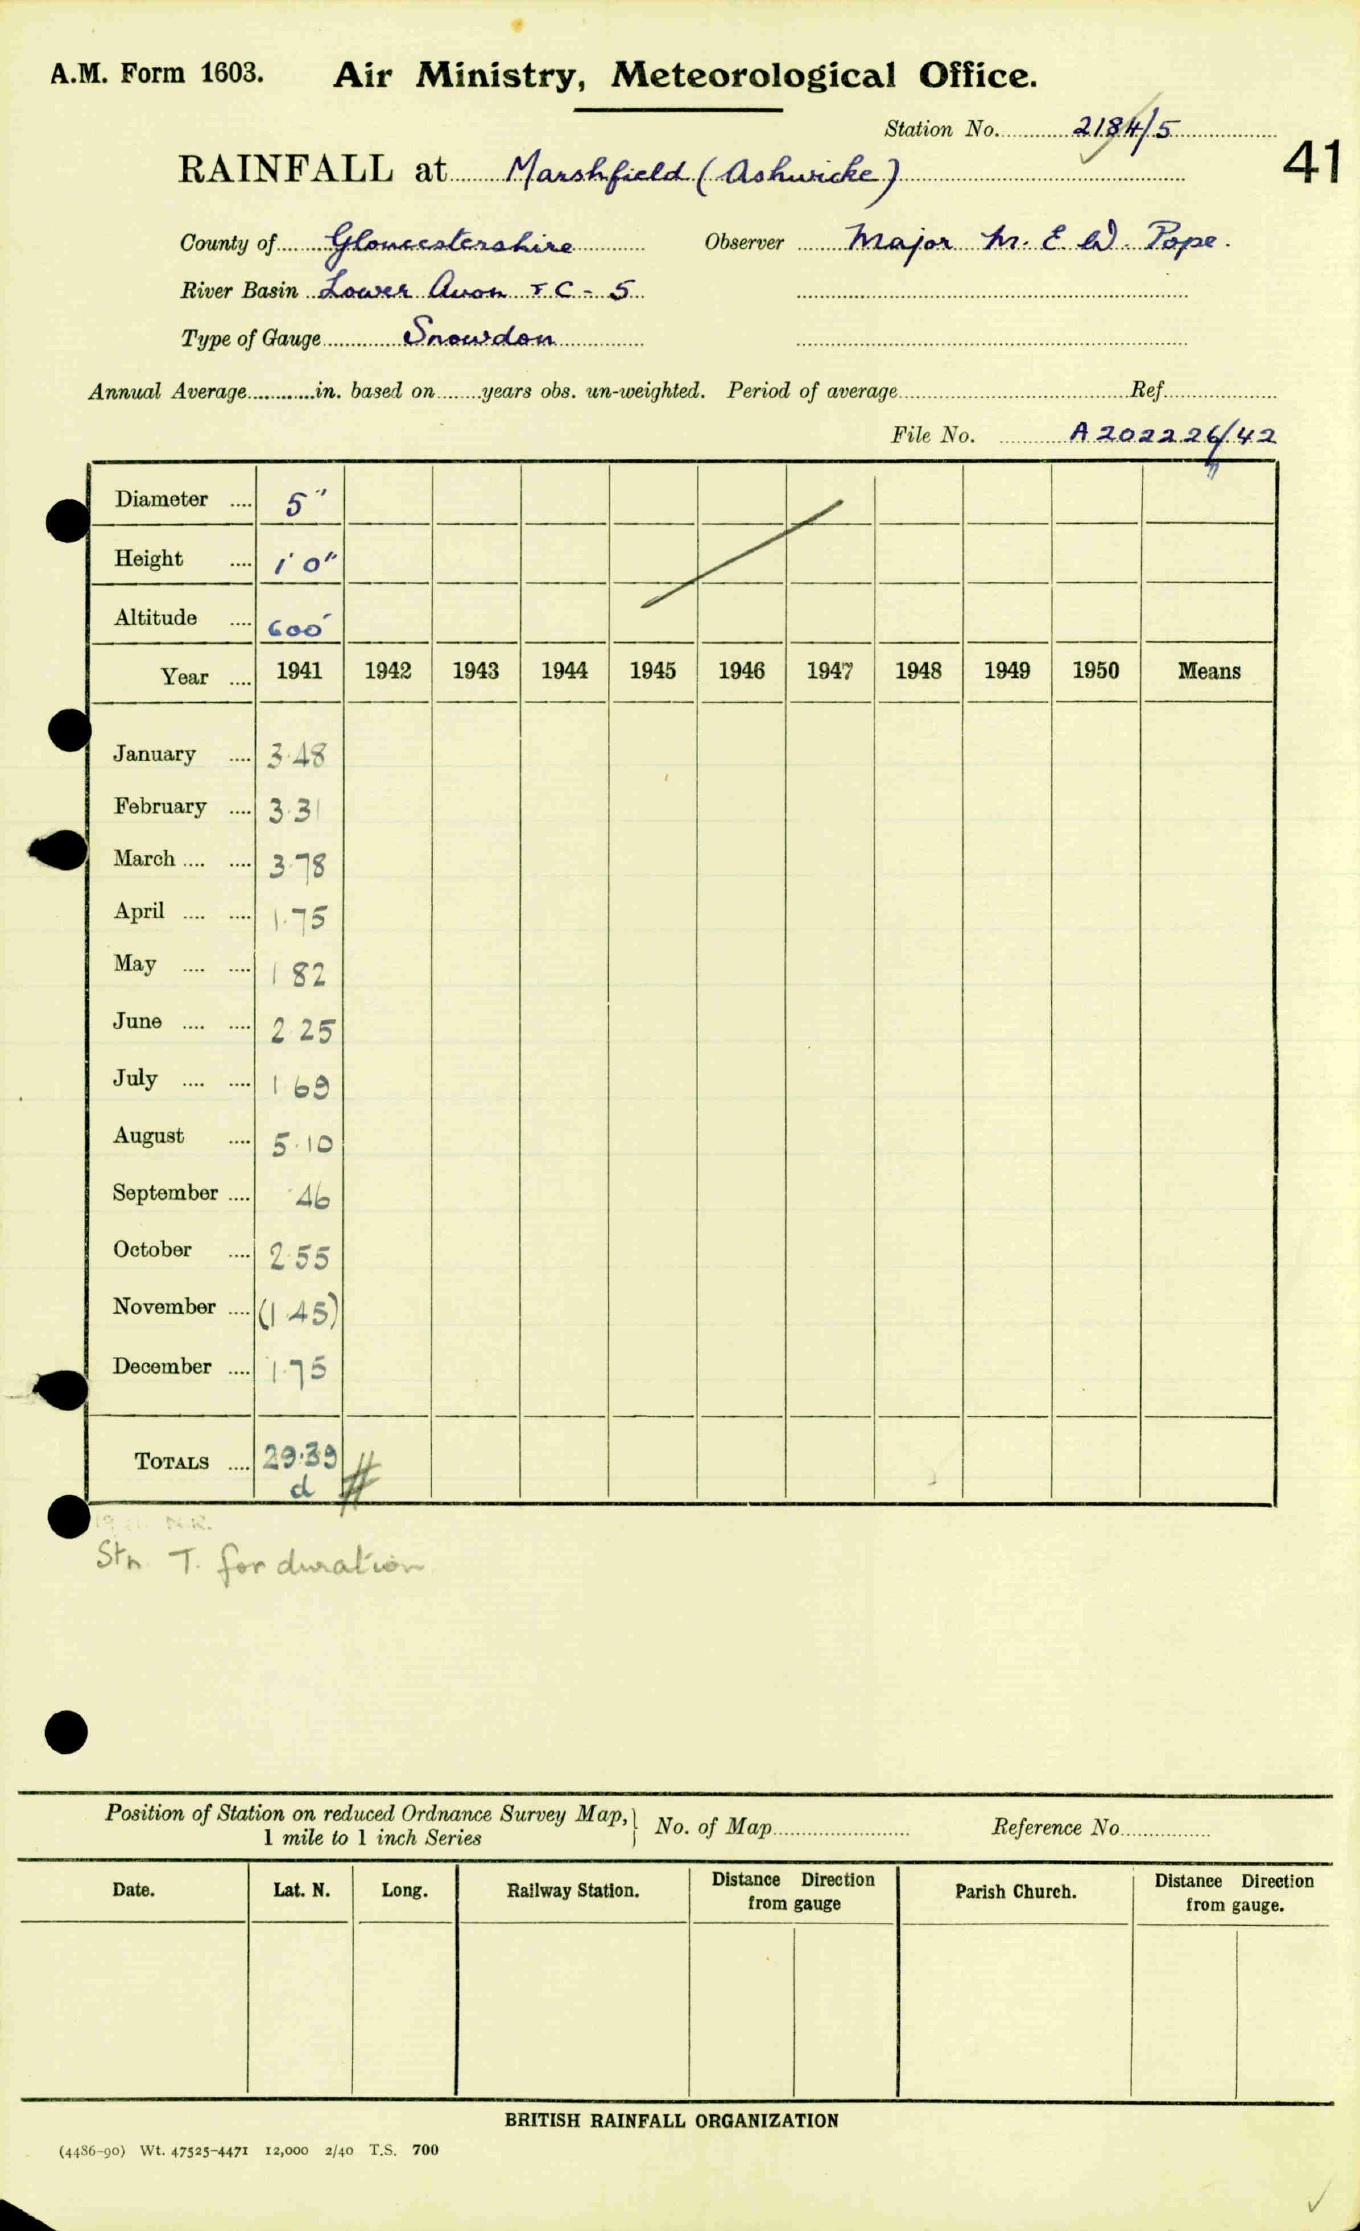 A.M. Form 1603. Air Ministry, Meteorological Office.
Station No. 2184/5
RAINFALL at Marshfield (Ashwicke)
41
County of Gloucestershire Observer Major M. E W. Pope.
River Basin Lower Avon + C - 5
Type of Gauge Snowdon
Annual Average............in. based on.......years obs. un-weighted. Period of average.......... Ref..........
File No. A 202226/42
Diameter .... 5"
Height .... 1' 0"
Altitude .... 600'
Year .... 1941 1942 1943 1944 1945 1946 1947 1948 1949 1950 Means
January .... 3.48
February .... 3.31
March .... .... 3.78
April .... .... 1.75
May .... .... 1 82
June .... .... 2 25
July .... .... 1 69
August .... 5.10
September .... .46
October .... 2.55
November .... (1 45)
December .... 1.75
TOTALS .... 29.39
d #
Stn. T. for duration
Position of Station on reduced Ordnance Survey Map, } No. of Map.......... Reference No..........
1 mile to 1 inch Series
Date. Lat. N. Long. Railway Station. Distance Direction from gauge Parish Church. Distance Direction from gauge.
BRITISH RAINFALL ORGANIZATION
(4486-90) Wt. 47525-4471 12,000 2/40 T.S. 700